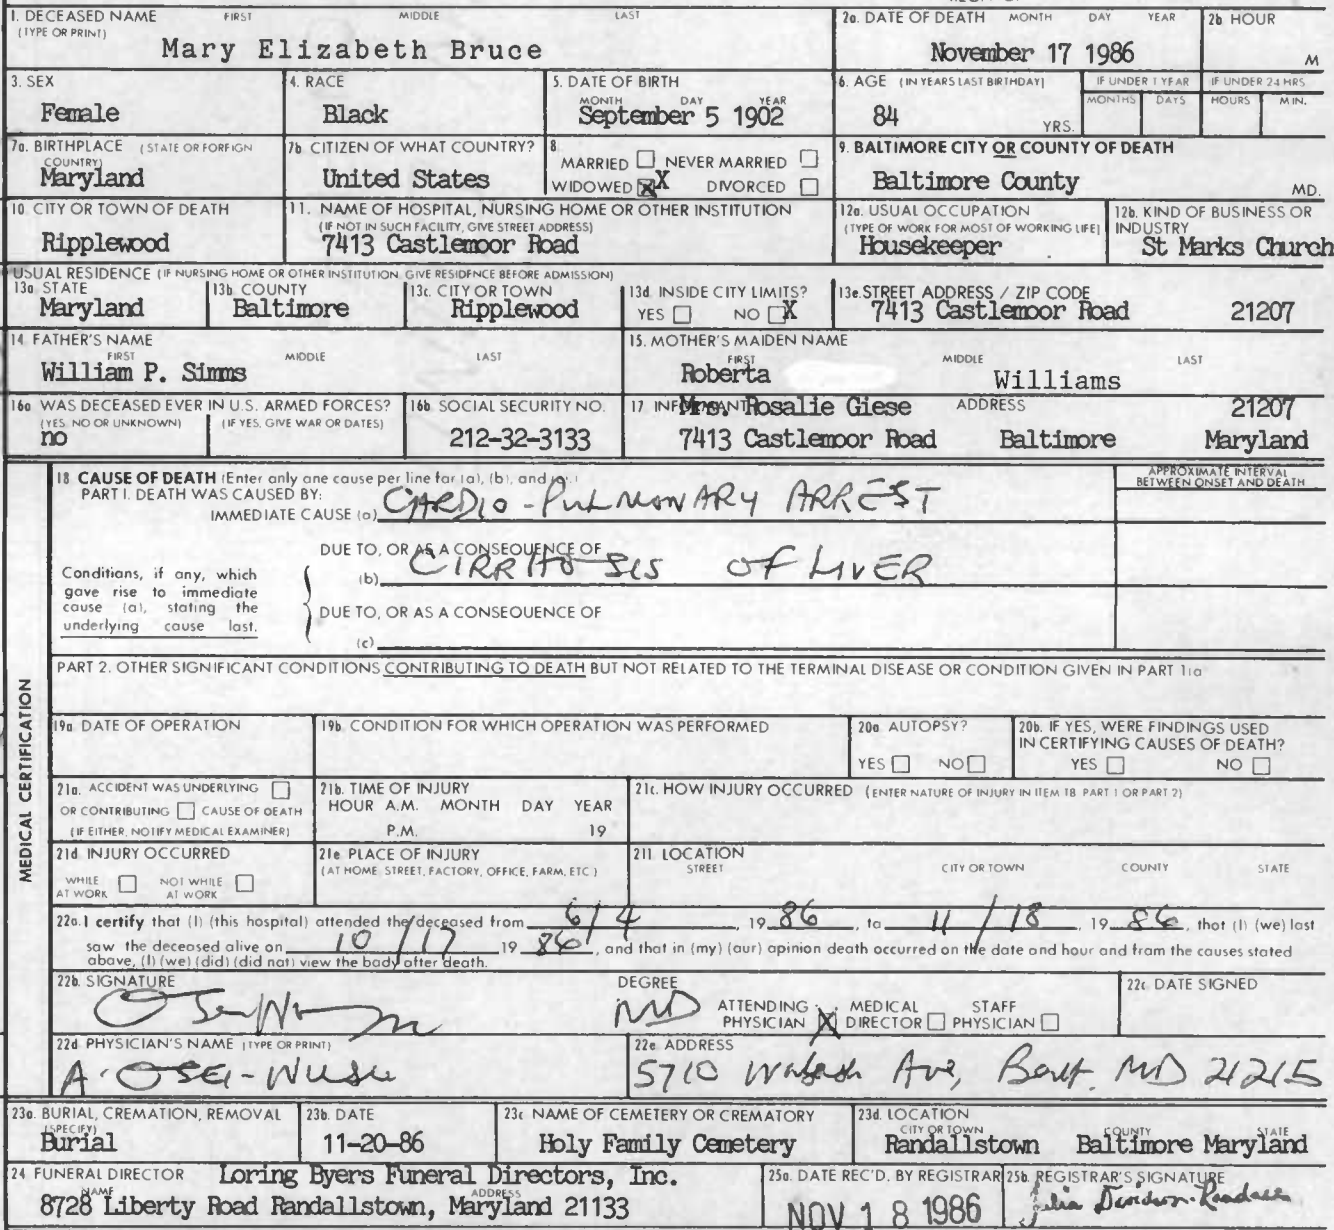 1. DECEASED NAME FIRST MIDDLE LAST
(TYPE OR PRINT)
Mary Elizabeth Bruce
2a. DATE OF DEATH MONTH DAY YEAR
November 17 1986
2b HOUR
M
3. SEX
Female
4. RACE
Black
5. DATE OF BIRTH
MONTH DAY YEAR
September 5 1902
6. AGE (IN YEARS LAST BIRTHDAY)
84
YRS.
IF UNDER 1 YEAR
MONTHS DAYS
IF UNDER 24 HRS
HOURS MIN.
7a. BIRTHPLACE (STATE OR FOREIGN
COUNTRY)
Maryland
7b CITIZEN OF WHAT COUNTRY?
United States
8
MARRIED NEVER MARRIED
WIDOWED X DIVORCED
9. BALTIMORE CITY OR COUNTY OF DEATH
Baltimore County
MD.
10 CITY OR TOWN OF DEATH
Ripplewood
11. NAME OF HOSPITAL, NURSING HOME OR OTHER INSTITUTION
(IF NOT IN SUCH FACILITY, GIVE STREET ADDRESS)
7413 Castlemoor Road
12a. USUAL OCCUPATION
(TYPE OF WORK FOR MOST OF WORKING LIFE)
Housekeeper
12b. KIND OF BUSINESS OR
INDUSTRY
St Marks Church
USUAL RESIDENCE (IF NURSING HOME OR OTHER INSTITUTION, GIVE RESIDENCE BEFORE ADMISSION)
13a STATE
Maryland
13b COUNTY
Baltimore
13c. CITY OR TOWN
Ripplewood
13d. INSIDE CITY LIMITS?
YES NO X
13e. STREET ADDRESS / ZIP CODE
7413 Castlemoor Road 21207
14 FATHER'S NAME
FIRST MIDDLE LAST
William P. Simms
15. MOTHER'S MAIDEN NAME
FIRST MIDDLE LAST
Roberta Williams
16a WAS DECEASED EVER IN U.S. ARMED FORCES?
(YES, NO OR UNKNOWN) (IF YES, GIVE WAR OR DATES)
no
16b SOCIAL SECURITY NO.
212-32-3133
17 INFORMANT ADDRESS
Mrs. Rosalie Giese 21207
7413 Castlemoor Road Baltimore Maryland
MEDICAL CERTIFICATION
18 CAUSE OF DEATH (Enter only one cause per line for (a), (b), and (c).)
PART I. DEATH WAS CAUSED BY:
IMMEDIATE CAUSE (a) CARDIO-PULMONARY ARREST
APPROXIMATE INTERVAL
BETWEEN ONSET AND DEATH
DUE TO, OR AS A CONSEQUENCE OF
(b) CIRRHOSIS OF LIVER
Conditions, if any, which
gave rise to immediate
cause (a), stating the
underlying cause last.
DUE TO, OR AS A CONSEQUENCE OF
(c)
PART 2. OTHER SIGNIFICANT CONDITIONS CONTRIBUTING TO DEATH BUT NOT RELATED TO THE TERMINAL DISEASE OR CONDITION GIVEN IN PART 1(a
19a DATE OF OPERATION
19b. CONDITION FOR WHICH OPERATION WAS PERFORMED
20a AUTOPSY?
YES NO
20b. IF YES, WERE FINDINGS USED
IN CERTIFYING CAUSES OF DEATH?
YES NO
21a. ACCIDENT WAS UNDERLYING
OR CONTRIBUTING CAUSE OF DEATH
(IF EITHER, NOTIFY MEDICAL EXAMINER)
21b. TIME OF INJURY
HOUR A.M. MONTH DAY YEAR
P.M. 19
21c. HOW INJURY OCCURRED (ENTER NATURE OF INJURY IN ITEM 18 PART 1 OR PART 2)
21d INJURY OCCURRED
WHILE AT WORK NOT WHILE AT WORK
21e PLACE OF INJURY
(AT HOME, STREET, FACTORY, OFFICE, FARM, ETC.)
21f LOCATION
STREET CITY OR TOWN COUNTY STATE
22a. I certify that (I) (this hospital) attended the deceased from 6/4, 19 86, to 11/18, 19 86, that (I) (we) last
saw the deceased alive on 10/17 19 86, and that in (my) (our) opinion death occurred on the date and hour and from the causes stated
above, (I) (we) (did) (did not) view the body after death.
22b. SIGNATURE
DEGREE
MD
ATTENDING PHYSICIAN X MEDICAL DIRECTOR STAFF PHYSICIAN
22c DATE SIGNED
22d PHYSICIAN'S NAME (TYPE OR PRINT)
A. OSEI-WUSU
22e ADDRESS
5710 Wabash Ave, Balt. MD 21215
23a. BURIAL, CREMATION, REMOVAL
(SPECIFY)
Burial
23b. DATE
11-20-86
23c NAME OF CEMETERY OR CREMATORY
Holy Family Cemetery
23d. LOCATION
CITY OR TOWN COUNTY STATE
Randallstown Baltimore Maryland
24 FUNERAL DIRECTOR Loring Byers Funeral Directors, Inc.
NAME ADDRESS
8728 Liberty Road Randallstown, Maryland 21133
25a. DATE REC'D. BY REGISTRAR
NOV 18 1986
25b. REGISTRAR'S SIGNATURE